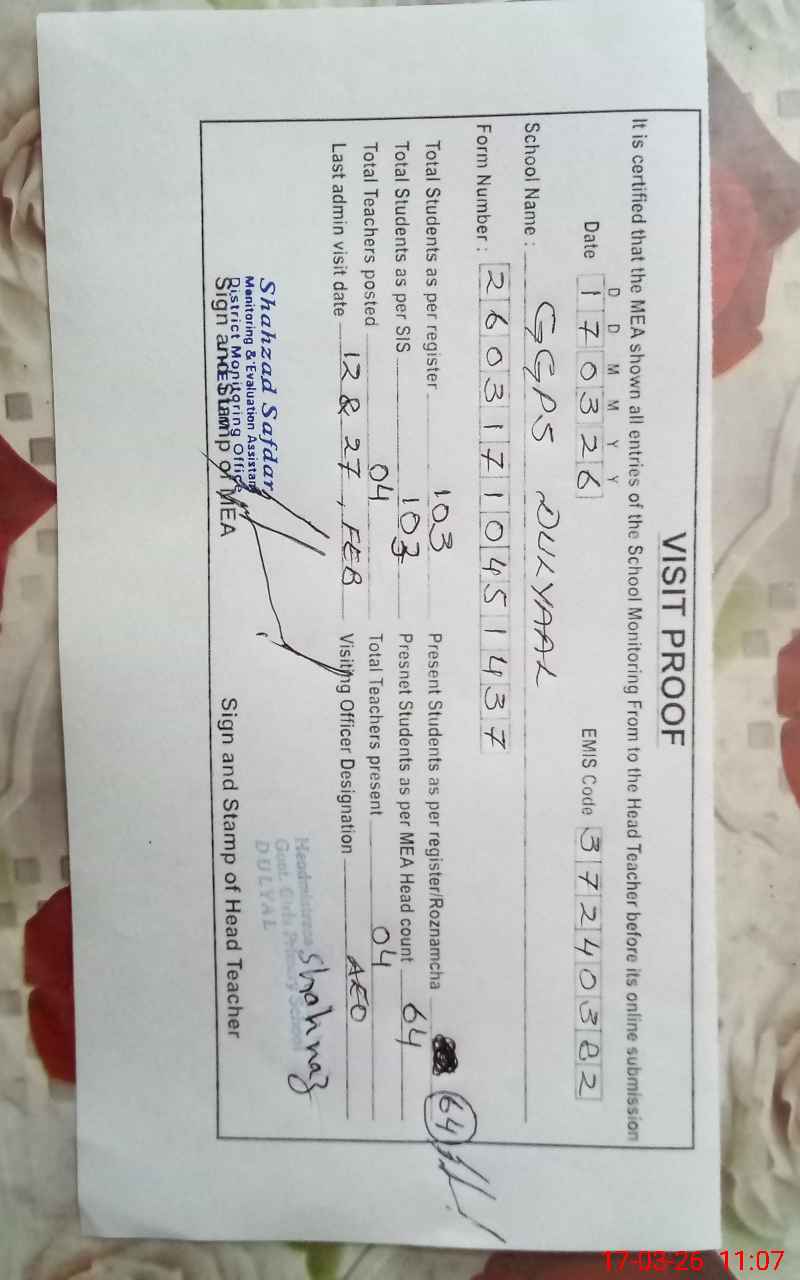 VISIT PROOF
It is certified that the MEA shown all entries of the School Monitoring From to the Head Teacher before its online submission
D D M M Y Y
Date 170326 EMIS Code 37240382
School Name : GGPS DULYAAL
Form Number : 26031710451437
Total Students as per register 103 Present Students as per register/Roznamcha 64
Total Students as per SIS 103 Presnet Students as per MEA Head count 64
Total Teachers posted 04 Total Teachers present 04
Last admin visit date 12 & 27, FEB Visiting Officer Designation AEO
Shahzad Safdar
Monitoring & Evaluation Assistant
District Monitoring Office
Sign and Stamp of MEA
Headmistress
Govt. Girls Primary School
DULYAL
Shahnaz
Sign and Stamp of Head Teacher
17-03-26 11:07